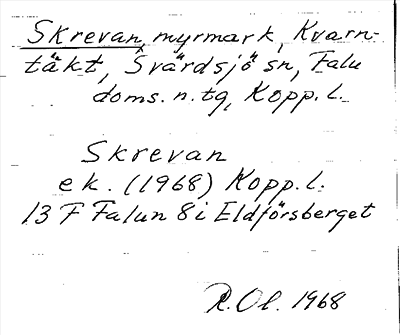 Skrevan, myrmark, Kvarn-
täkt, Svärdsjö sn, Falu
doms. n. tg, Kopp. l.
Skrevan
ek. (1968) Kopp. l.
13 F Falun 8 i Eldförsberget
R. Ol. 1968